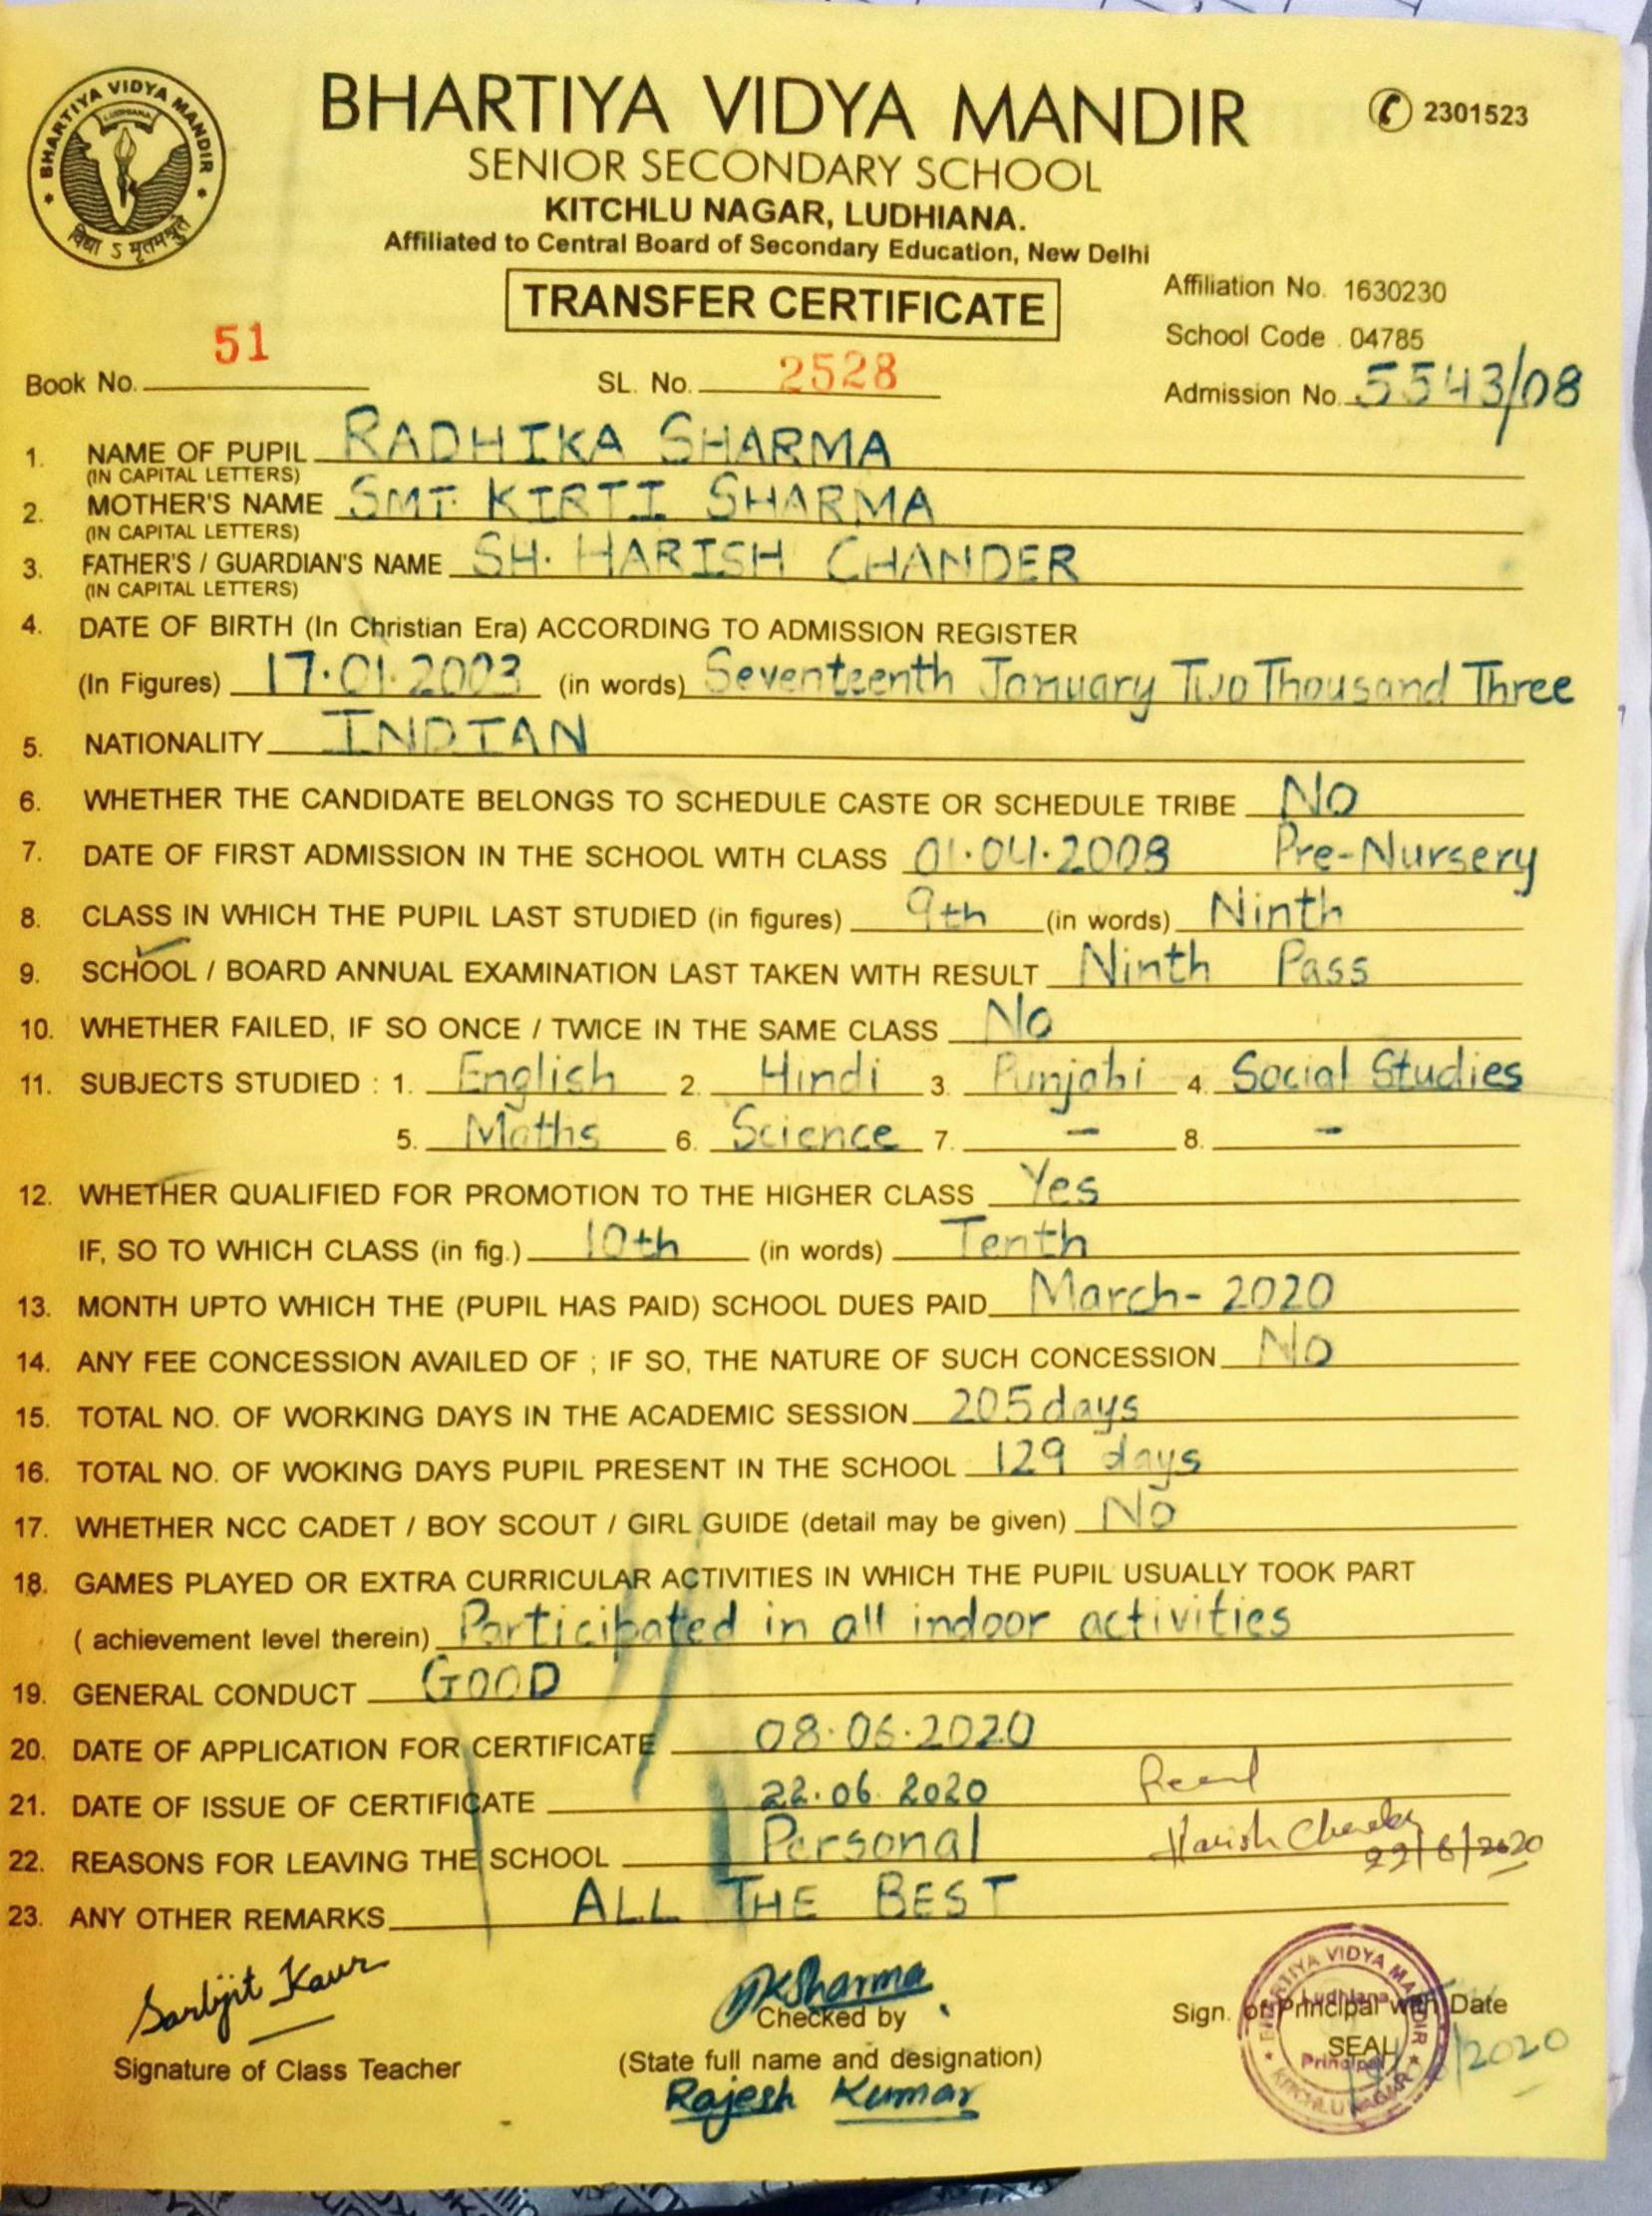 BHARTIYA VIDYA MANDIR
LUDHIANA
विद्या ऽ मृतमश्नुते
BHARTIYA VIDYA MANDIR
2301523
SENIOR SECONDARY SCHOOL
KITCHLU NAGAR, LUDHIANA.
Affiliated to Central Board of Secondary Education, New Delhi
TRANSFER CERTIFICATE
Affiliation No. 1630230
School Code . 04785
Book No. 51 SL. No. 2528 Admission No. 5543/08
1. NAME OF PUPIL RADHIKA SHARMA
(IN CAPITAL LETTERS)
2. MOTHER'S NAME SMT. KIRTI SHARMA
(IN CAPITAL LETTERS)
3. FATHER'S / GUARDIAN'S NAME SH. HARISH CHANDER
(IN CAPITAL LETTERS)
4. DATE OF BIRTH (In Christian Era) ACCORDING TO ADMISSION REGISTER
(In Figures) 17.01.2003 (in words) Seventeenth January Two Thousand Three
5. NATIONALITY INDIAN
6. WHETHER THE CANDIDATE BELONGS TO SCHEDULE CASTE OR SCHEDULE TRIBE No
7. DATE OF FIRST ADMISSION IN THE SCHOOL WITH CLASS 01.04.2008 Pre-Nursery
8. CLASS IN WHICH THE PUPIL LAST STUDIED (in figures) 9th (in words) Ninth
9. SCHOOL / BOARD ANNUAL EXAMINATION LAST TAKEN WITH RESULT Ninth Pass
10. WHETHER FAILED, IF SO ONCE / TWICE IN THE SAME CLASS No
11. SUBJECTS STUDIED : 1. English 2. Hindi 3. Punjabi 4. Social Studies
5. Maths 6. Science 7. - 8. -
12. WHETHER QUALIFIED FOR PROMOTION TO THE HIGHER CLASS Yes
IF, SO TO WHICH CLASS (in fig.) 10th (in words) Tenth
13. MONTH UPTO WHICH THE (PUPIL HAS PAID) SCHOOL DUES PAID March- 2020
14. ANY FEE CONCESSION AVAILED OF ; IF SO, THE NATURE OF SUCH CONCESSION No
15. TOTAL NO. OF WORKING DAYS IN THE ACADEMIC SESSION 205 days
16. TOTAL NO. OF WOKING DAYS PUPIL PRESENT IN THE SCHOOL 129 days
17. WHETHER NCC CADET / BOY SCOUT / GIRL GUIDE (detail may be given) No
18. GAMES PLAYED OR EXTRA CURRICULAR ACTIVITIES IN WHICH THE PUPIL USUALLY TOOK PART
( achievement level therein) Participated in all indoor activities
19. GENERAL CONDUCT GOOD
20. DATE OF APPLICATION FOR CERTIFICATE 08.06.2020
21. DATE OF ISSUE OF CERTIFICATE 22.06.2020
22. REASONS FOR LEAVING THE SCHOOL Personal Harish Chander
22/6/2020
23. ANY OTHER REMARKS ALL THE BEST
Sarbjit Kaur
Signature of Class Teacher
Sharma
Checked by
(State full name and designation)
Rajesh Kumar
Sign. of Principal with Date
SEAL
BHARTIYA VIDYA MANDIR
Ludhiana
Principal
KITCHLU NAGAR
/2020